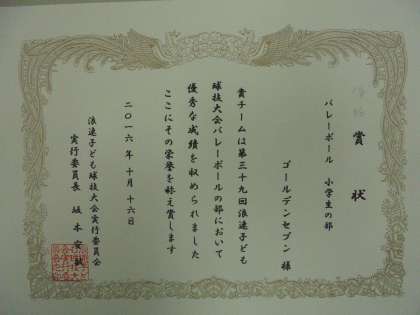 賞状
バレーボール 小学生の部
ゴールデンセブン様
貴チームは第三十九回浪速子ども
球技大会バレーボールの部において
優秀な成績を収められました
ここにその栄誉を称え賞します
二〇一六年十月十六日
浪速子ども球技大会実行委員会
実行委員長 坂本